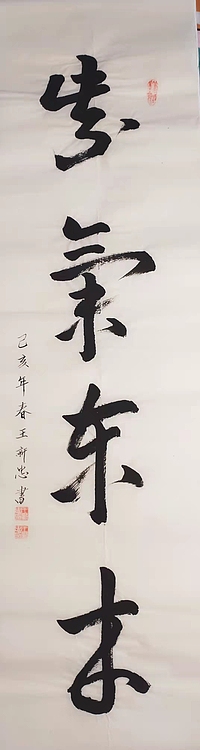 紫氣东来
己亥年春王新忠書